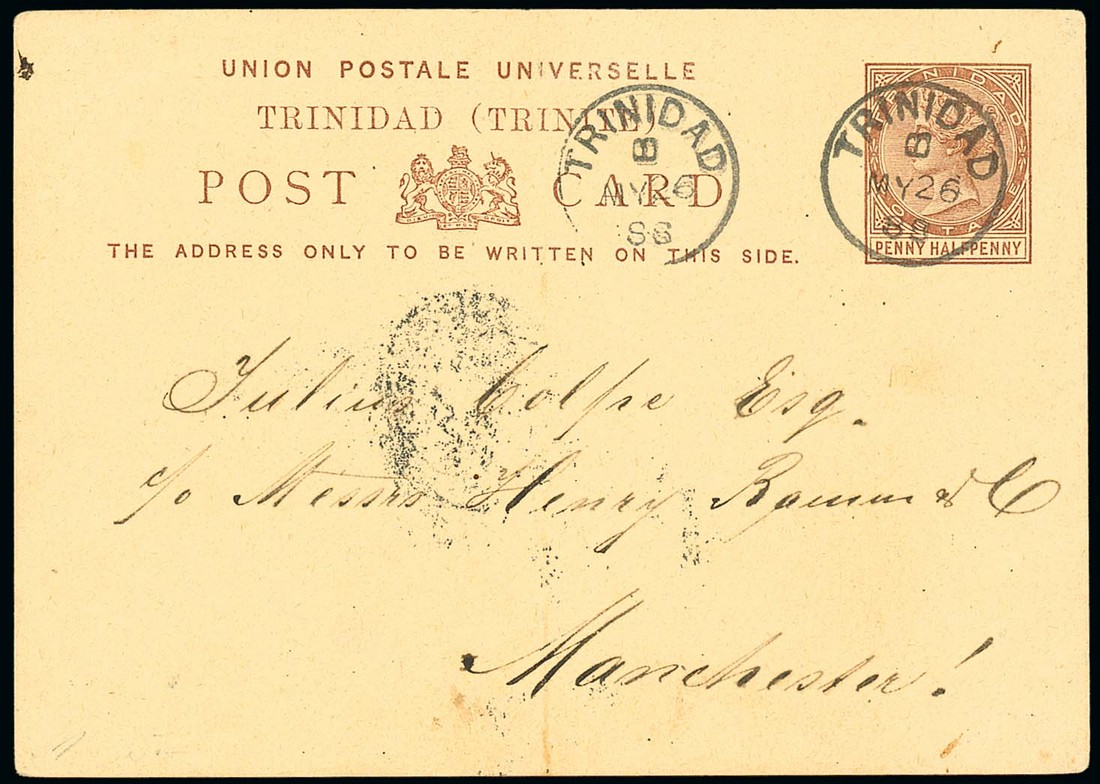 UNION POSTALE UNIVERSELLE
TRINIDAD (TRINITE)
POST CARD
THE ADDRESS ONLY TO BE WRITTEN ON THIS SIDE.
TRINIDAD
B
MY 26
86
TRINIDAD
B
MY 26
86
TRINIDAD
PENNY HALFPENNY
Julius Colpe Esq.
c/o Messrs Henry & C
Manchester!